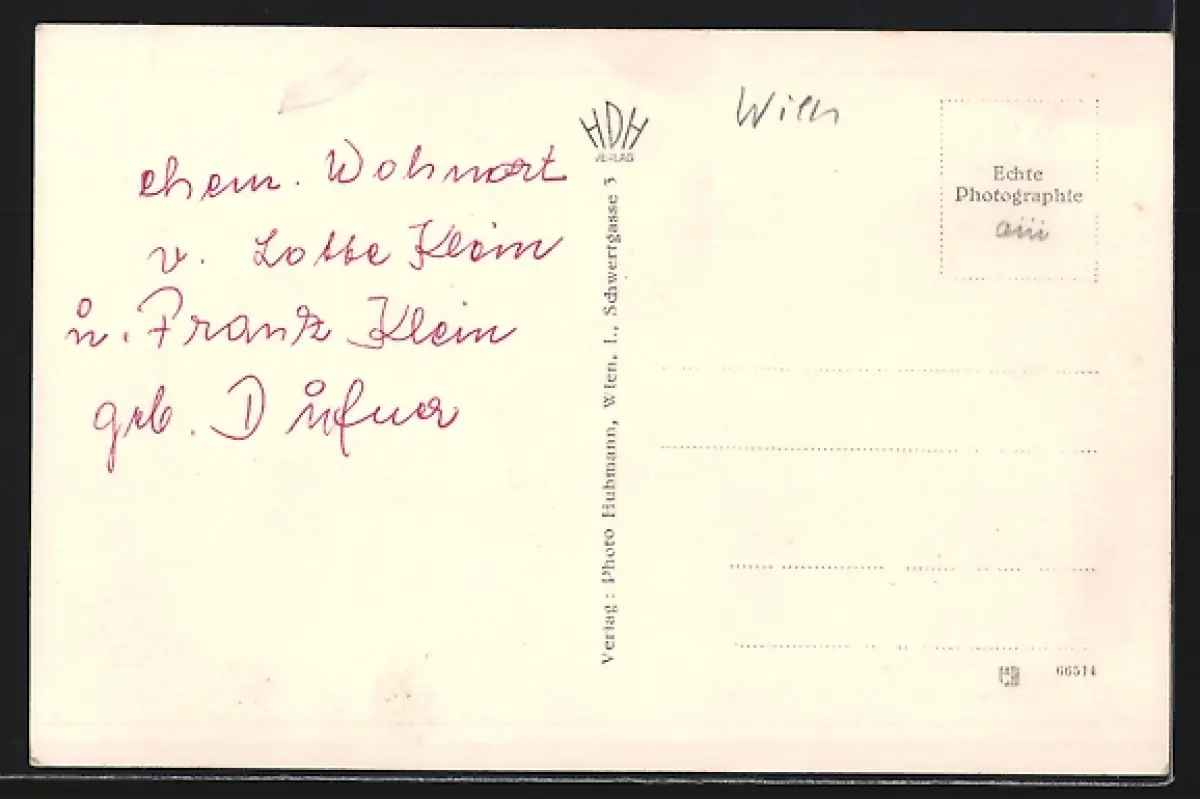 ehem. Wohnort
v. Lotte Klein
u. Franz Klein
geb.
HDH
VERLAG
Verlag: Photo Hubmann, Wien, I., Schwertgasse 3
Echte
Photographie
66514